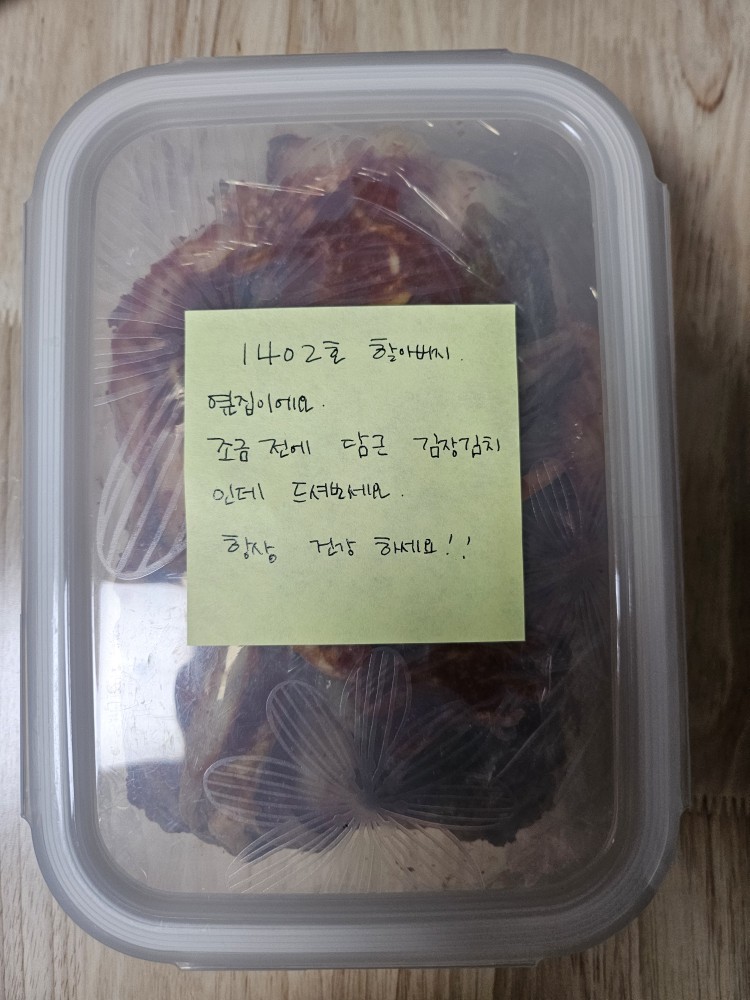 1402호 할아버지.
옆집이에요.
조금 전에 담근 김장김치
인데 드셔보세요.
항상 건강 하세요!!